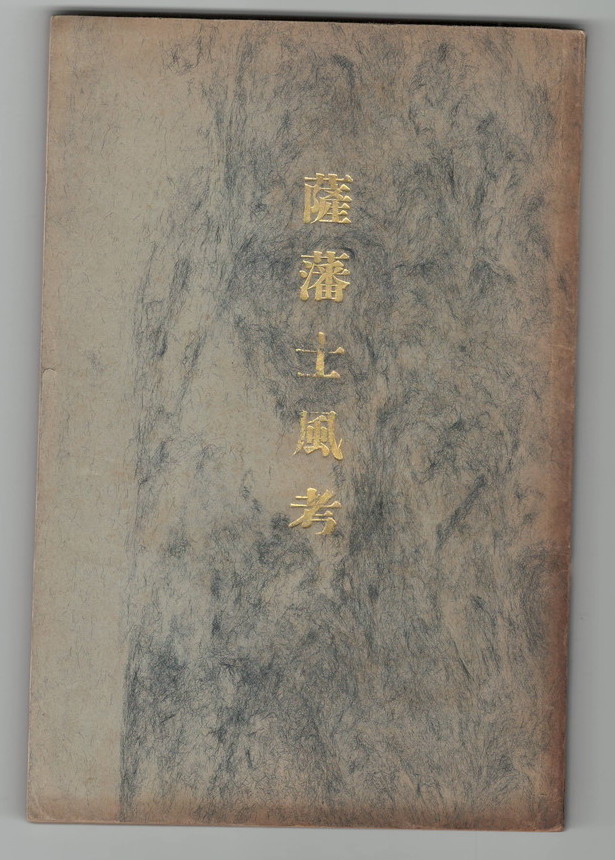 薩藩士風考